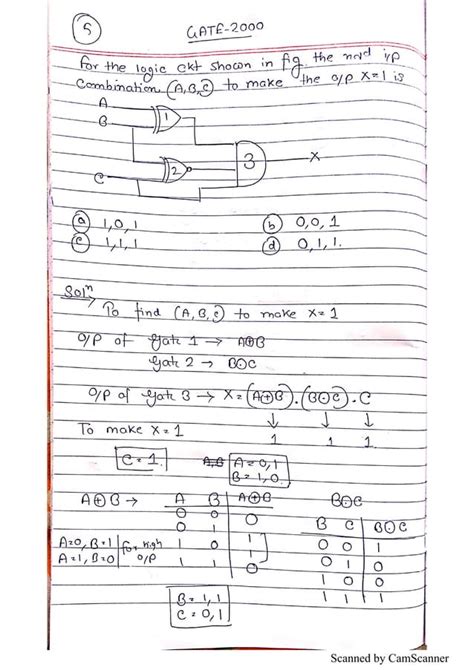 5
GATE-2000
For the logic ckt shown in fig the reqd i/p
Combination (A,B,C) to make the o/p X=1 is
A
B
1
3
X
2
C
(a) 1,0,1
(b) 0,0,1
(c) 1,1,1
(d) 0,1,1.
Solⁿ
To find (A,B,C) to make X=1
O/P of Gate 1 → A⊕B
Gate 2 → B⊙C
O/P of Gate 3 → X=(A⊕B).(B⊙C).C
↓ ↓ ↓
To make X=1 1 1 1
C=1. A=0,1
B=1,0.
A⊕B → A B A⊕B
B⊙C
0 0 0
0 1 1
1 0 1
1 1 0
A=0, B=1
A=1, B=0
for high
o/p
B C B⊙C
0 0 1
0 1 0
1 0 0
1 1 1
B=1,1
C=0,1
Scanned by CamScanner